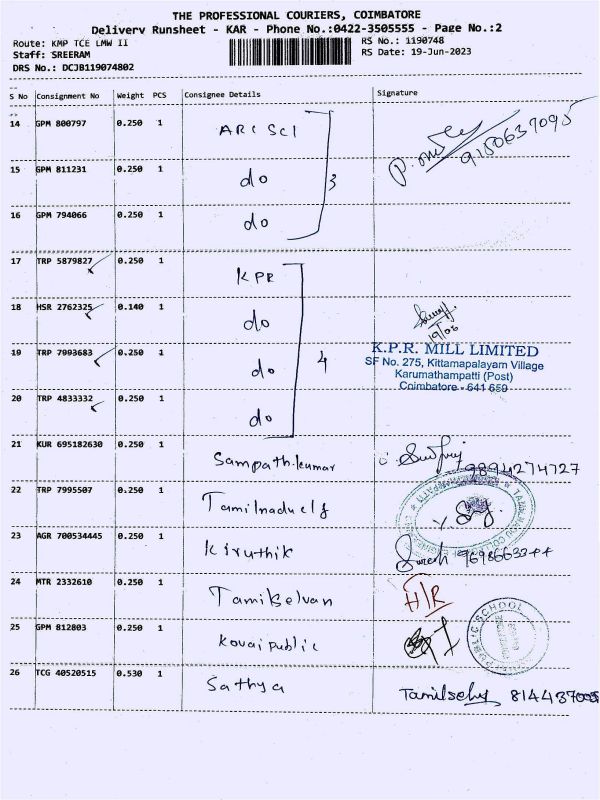 THE PROFESSIONAL COURIERS, COIMBATORE
Delivery Runsheet - KAR - Phone No.:0422-3505555 - Page No.:2
Route: KMP TCE LMW II RS No.: 1190748
Staff: SREERAM RS Date: 19-Jun-2023
DRS No.: DCJB119074802
S No Consignment No Weight PCS Consignee Details Signature
14 GPM 800797 0.250 1 ARC SCI 9150637095
15 GPM 811231 0.250 1 do 3
16 GPM 794066 0.250 1 do
17 TRP 5879827 0.250 1 KPR
18 HSR 2762325 0.140 1 do 19/06
19 TRP 7993683 0.250 1 do 4 K.P.R. MILL LIMITED
SF No. 275, Kittamapalayam Village
Karumathampatti (Post)
Coimbatore - 641 659
20 TRP 4833332 0.250 1 do
21 KUR 695182630 0.250 1 Sampath.kumar 9894274727
22 TRP 7995507 0.250 1
23 AGR 700534445 0.250 1 Kiruthik Suresh
24 MTR 2332610 0.250 1 Tamilselvan H/R
25 GPM 812803 0.250 1 Kovai public PUBLIC SCHOOL
26 TCG 40520515 0.530 1 Sathya